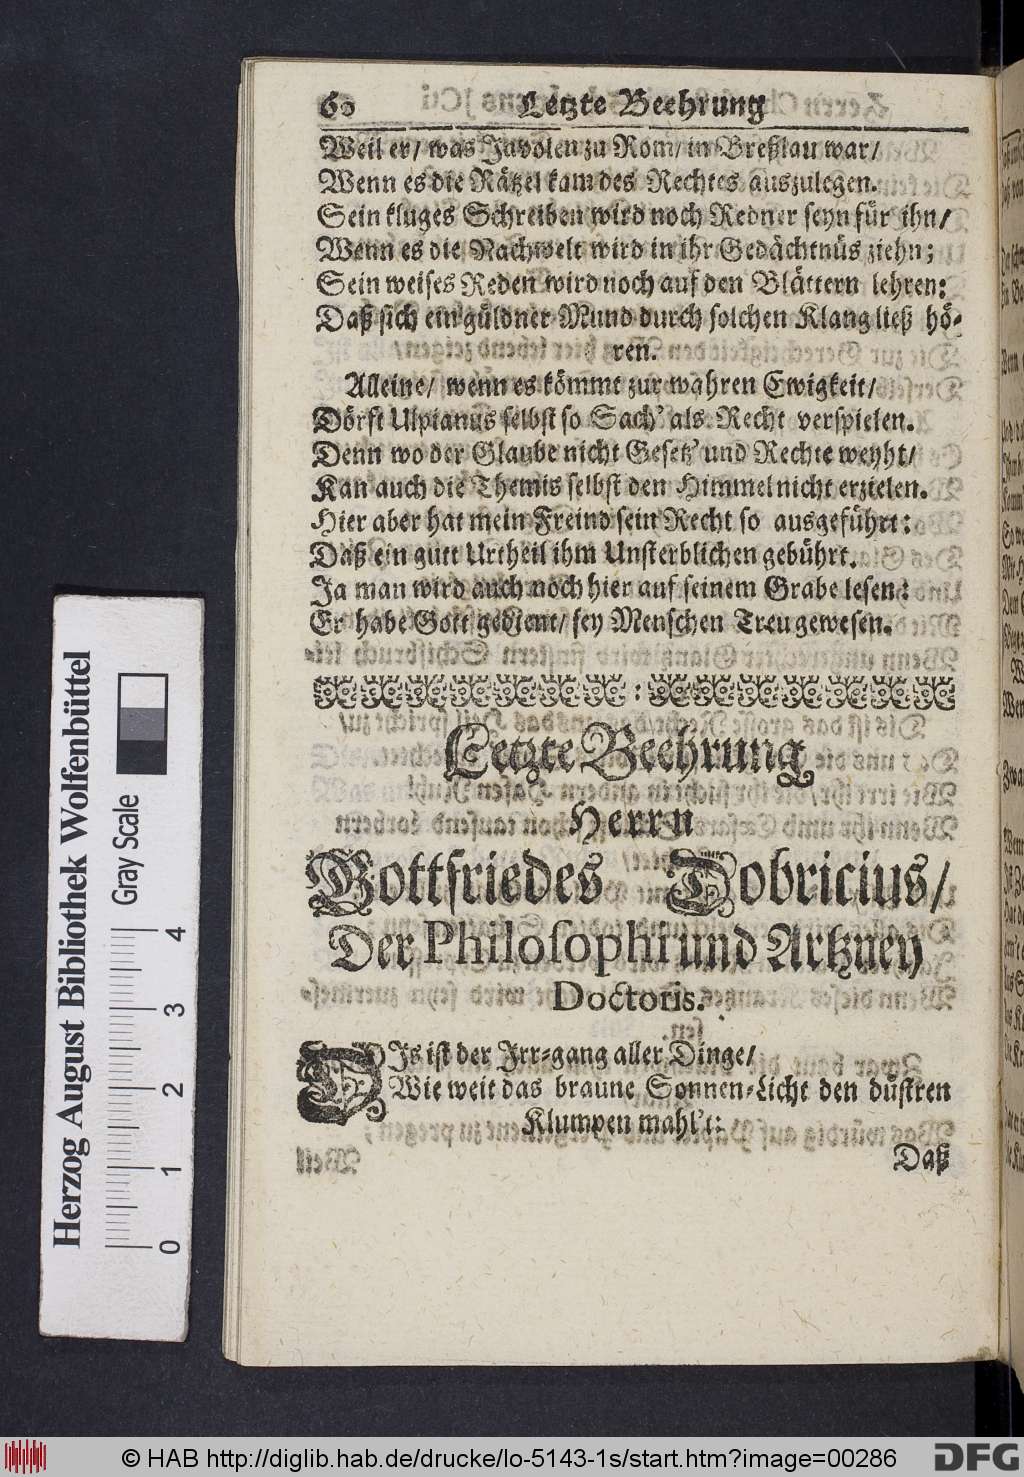 60 Letzte Beehrung
Weil er/ was Javolen zu Rom/ in Breßlau war/
Wenn es die Rätzel kam des Rechtes auszulegen.
Sein kluges Schreiben wird noch Redner seyn für ihn/
Wenn es die Nachwelt wird in ihr Gedächtnüs ziehn;
Sein weises Reden wird noch auf den Blättern lehren:
Daß sich ein güldner Mund durch solchen Klang ließ hö-
ren.
Alleine/ wenn es kömmt zur wahren Ewigkeit/
Dörft Ulpianus selbst so Sach' als Recht verspielen.
Denn wo der Glaube nicht Gesetz' und Rechte weyht/
Kan auch die Themis selbst den Himmel nicht erzielen.
Hier aber hat mein Freind sein Recht so ausgeführt:
Daß ein gutt Urtheil ihm Unsterblichen gebührt.
Ja man wird auch noch hier auf seinem Grabe lesen:
Er habe Gott gedient/ sey Menschen Treu gewesen.
Letzte Beehrung
Herrn
Gottfriedes Dobricius/
Der Philosophi und Artzney
Doctoris.
DJs ist der Jrr-gang aller Dinge/
Wie weit das braune Sonnen-Licht den düstren
Klumpen mahl't:
Daß
Herzog August Bibliothek Wolfenbüttel
Gray Scale
0 1 2 3 4
© HAB http://diglib.hab.de/drucke/lo-5143-1s/start.htm?image=00286
DFG